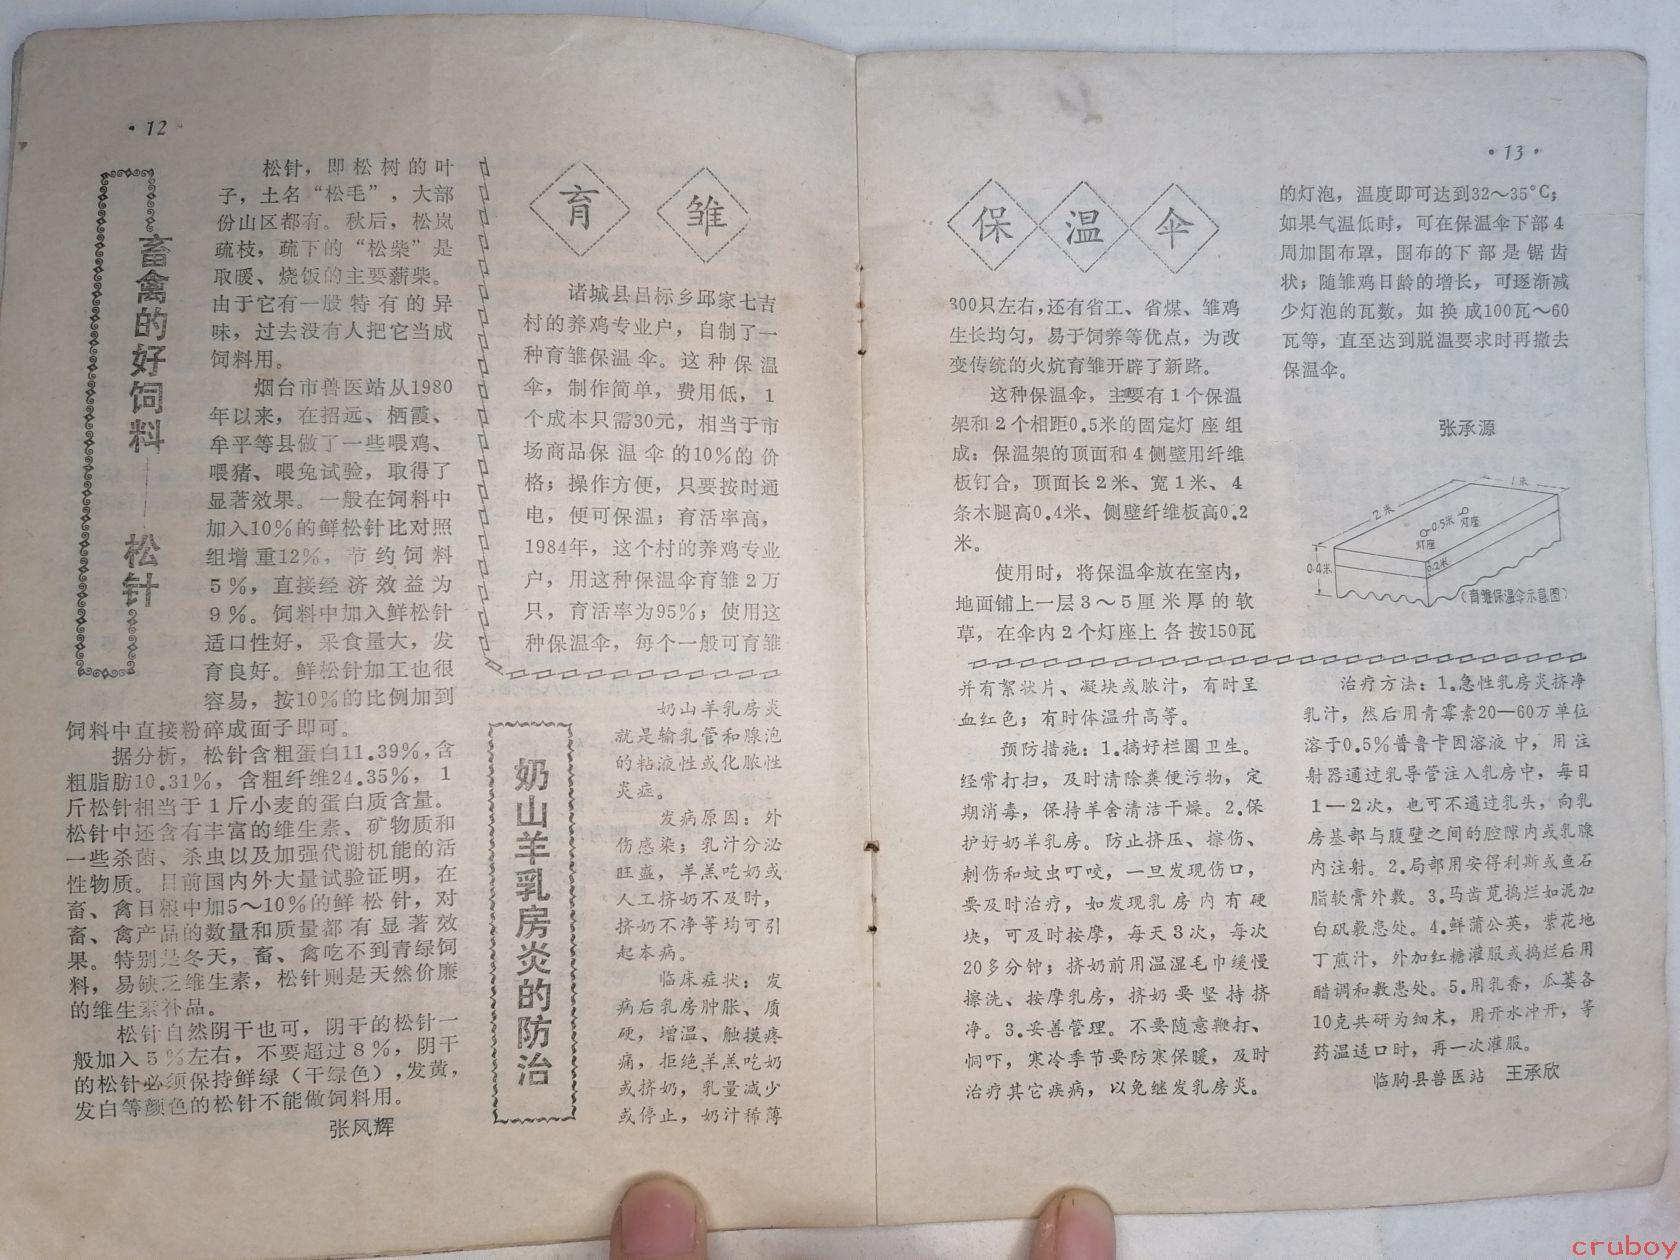 ·12·
畜禽的好饲料——松针
松针，即松树的叶
子，土名“松毛”，大部
份山区都有。秋后，松岚
疏枝，疏下的“松柴”是
取暖、烧饭的主要薪柴。
由于它有一股特有的异
味，过去没有人把它当成
饲料用。
烟台市兽医站从1980
年以来，在招远、栖霞、
牟平等县做了一些喂鸡、
喂猪、喂兔试验，取得了
显著效果。一般在饲料中
加入10％的鲜松针比对照
组增重12％，节约饲料
5％，直接经济效益为
9％。饲料中加入鲜松针
适口性好，采食量大，发
育良好。鲜松针加工也很
容易，按10％的比例加到
饲料中直接粉碎成面子即可。
据分析，松针含粗蛋白11.39％，含
粗脂肪10.31％，含粗纤维24.35％，1
斤松针相当于1斤小麦的蛋白质含量。
松针中还含有丰富的维生素、矿物质和
一些杀菌、杀虫以及加强代谢机能的活
性物质。目前国内外大量试验证明，在
畜、禽日粮中加5～10％的鲜松针，对
畜、禽产品的数量和质量都有显著效
果。特别是冬天，畜、禽吃不到青绿饲
料，易缺乏维生素，松针则是天然价廉
的维生素补品。
松针自然阴干也可，阴干的松针一
般加入5％左右，不要超过8％，阴干
的松针必须保持鲜绿（干绿色），发黄，
发白等颜色的松针不能做饲料用。
张风辉
育雏
诸城县吕标乡邱家七吉
村的养鸡专业户，自制了一
种育雏保温伞。这种保温
伞，制作简单，费用低，1
个成本只需30元，相当于市
场商品保温伞的10％的价
格；操作方便，只要按时通
电，便可保温；育活率高，
1984年，这个村的养鸡专业
户，用这种保温伞育雏2万
只，育活率为95％；使用这
种保温伞，每个一般可育雏
保温伞
·13·
300只左右，还有省工、省煤、雏鸡
生长均匀，易于饲养等优点，为改
变传统的火炕育雏开辟了新路。
这种保温伞，主要有1个保温
架和2个相距0.5米的固定灯座组
成：保温架的顶面和4侧壁用纤维
板钉合，顶面长2米、宽1米、4
条木腿高0.4米、侧壁纤维板高0.2
米。
使用时，将保温伞放在室内，
地面铺上一层3～5厘米厚的软
草，在伞内2个灯座上各按150瓦
的灯泡，温度即可达到32～35℃；
如果气温低时，可在保温伞下部4
周加围布罩，围布的下部是锯齿
状；随雏鸡日龄的增长，可逐渐减
少灯泡的瓦数，如换成100瓦～60
瓦等，直至达到脱温要求时再撤去
保温伞。
张承源
1米
2米
0.5米 灯座
灯座
0.4米
0.2米
（育雏保温伞示意图）
奶山羊乳房炎的防治
奶山羊乳房炎
就是输乳管和腺泡
的粘液性或化脓性
炎症。
发病原因：外
伤感染；乳汁分泌
旺盛，羊羔吃奶或
人工挤奶不及时，
挤奶不净等均可引
起本病。
临床症状：发
病后乳房肿胀、质
硬，增温、触摸疼
痛，拒绝羊羔吃奶
或挤奶，乳量减少
或停止，奶汁稀薄
并有絮状片、凝块或脓汁，有时呈
血红色；有时体温升高等。
预防措施：1.搞好栏圈卫生。
经常打扫，及时清除粪便污物，定
期消毒，保持羊舍清洁干燥。2.保
护好奶羊乳房。防止挤压、擦伤、
刺伤和蚊虫叮咬，一旦发现伤口，
要及时治疗，如发现乳房内有硬
块，可及时按摩，每天3次，每次
20多分钟；挤奶前用温湿毛巾缓慢
擦洗、按摩乳房，挤奶要坚持挤
净。3.妥善管理。不要随意鞭打、
恫吓，寒冷季节要防寒保暖，及时
治疗其它疾病，以免继发乳房炎。
治疗方法：1.急性乳房炎挤净
乳汁，然后用青霉素20—60万单位
溶于0.5％普鲁卡因溶液中，用注
射器通过乳导管注入乳房中，每日
1—2次，也可不通过乳头，向乳
房基部与腹壁之间的腔隙内或乳腺
内注射。2.局部用安得利斯或鱼石
脂软膏外敷。3.马齿苋捣烂如泥加
白矾敷患处。4.鲜蒲公英，紫花地
丁煎汁，外加红糖灌服或捣烂后用
醋调和敷患处。5.用乳香，瓜蒌各
10克共研为细末，用开水冲开，等
药温适口时，再一次灌服。
临朐县兽医站 王承欣
cruboy